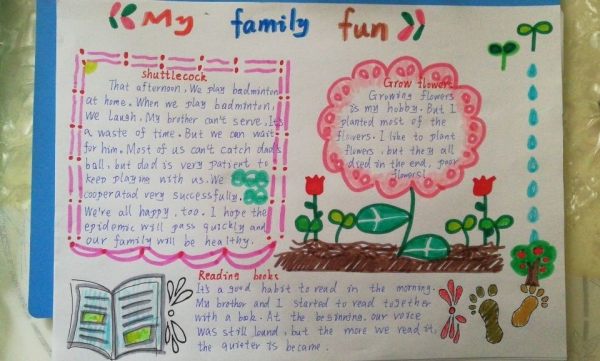 My family fun
shuttlecock
That afternoon, We play badminton
at home. When we play badminton,
We Laugh. My brother can't serve, It's
a waste of time. But we can wait
for him. Most of us can't catch dad's
ball, but dad is very patient to
keep playing with us. We
cooperatad very successfully.
We're all happy, too. I hope the
epidemic will pass quickly and
our family will be healthy.
Grow flowers
Growing flowers
is my hobby. But I
planted most of the
flowers. I like to plant
flowers, but they all
died in the end, poor
flowers!
Reading books
It's a good habit to read in the morning.
My brother and I started to read together
with a book. At the beginning, our voice
was still lound, but the more we read it,
the quieter is became.